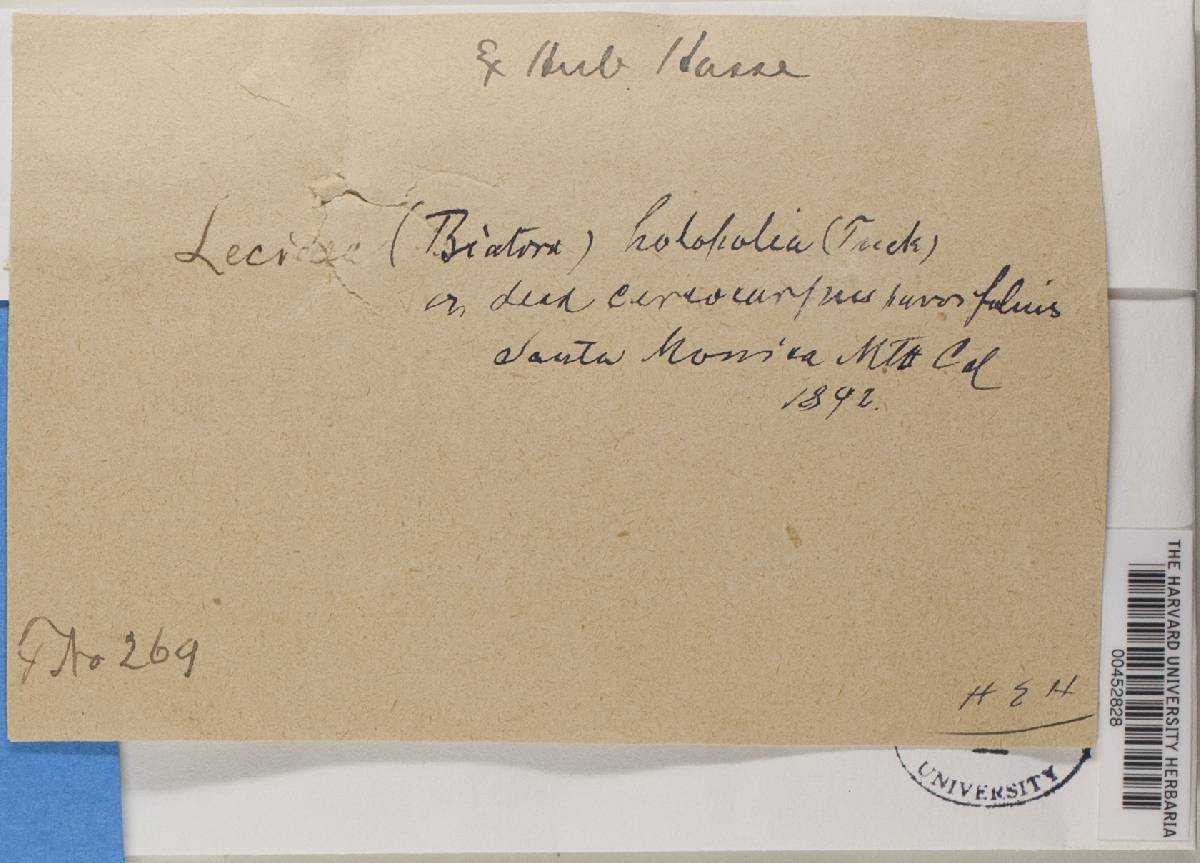 Ex Herb Hasse
Lecidea (Biatora) holopolia (Tuck)
on dead cercocarpus parvifolius
Santa Monica Mts Cal
1892.
No 269
H E H
UNIVERSITY
THE HARVARD UNIVERSITY HERBARIA
00452828